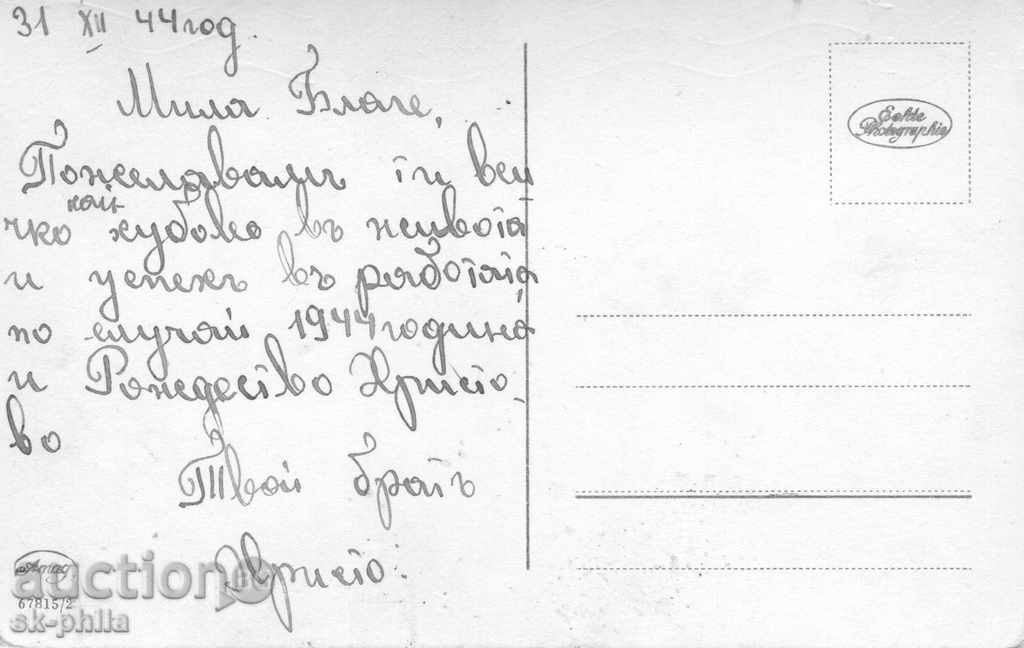 31 XII 44 год.
Мила Благе,
Пожелавамъ ти вси
най-
чко хубово въ живота
и успехъ въ работата
по случай 1944 година
и Рождество Христо
во
Твой братъ
Христо.
Echte
Photographie
Amag
67815/2
auction.bg
sk-phila